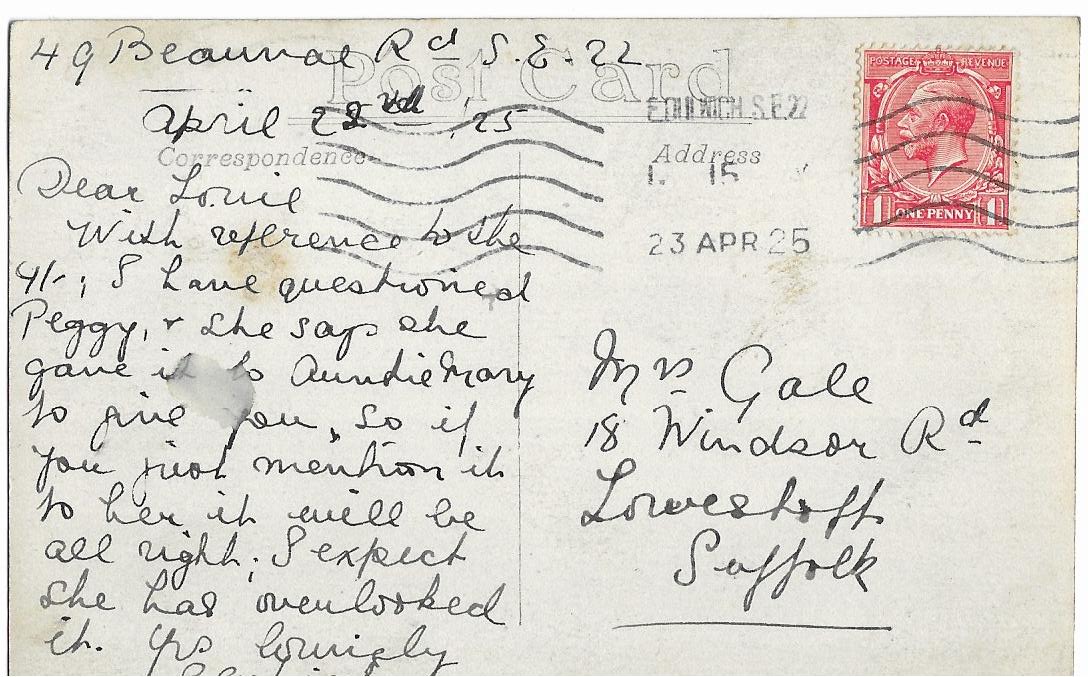 49 Beauval Rd S.E. 22
Post Card
April 22nd, 25
Correspondence
Dear Louie
With reference to the
4/-; I have questioned
Peggy, & she says she
gave it to Auntie Mary
to give you, so if
you just mention it
to her it will be
all right; I expect
she has overlooked
it. Yrs lovingly
POSTAGE REVENUE
1 ONE PENNY 1
DULWICH. S.E.22
Address
1. 15
23 APR 25
Mrs Gale
18 Windsor Rd
Lowestoft
Suffolk